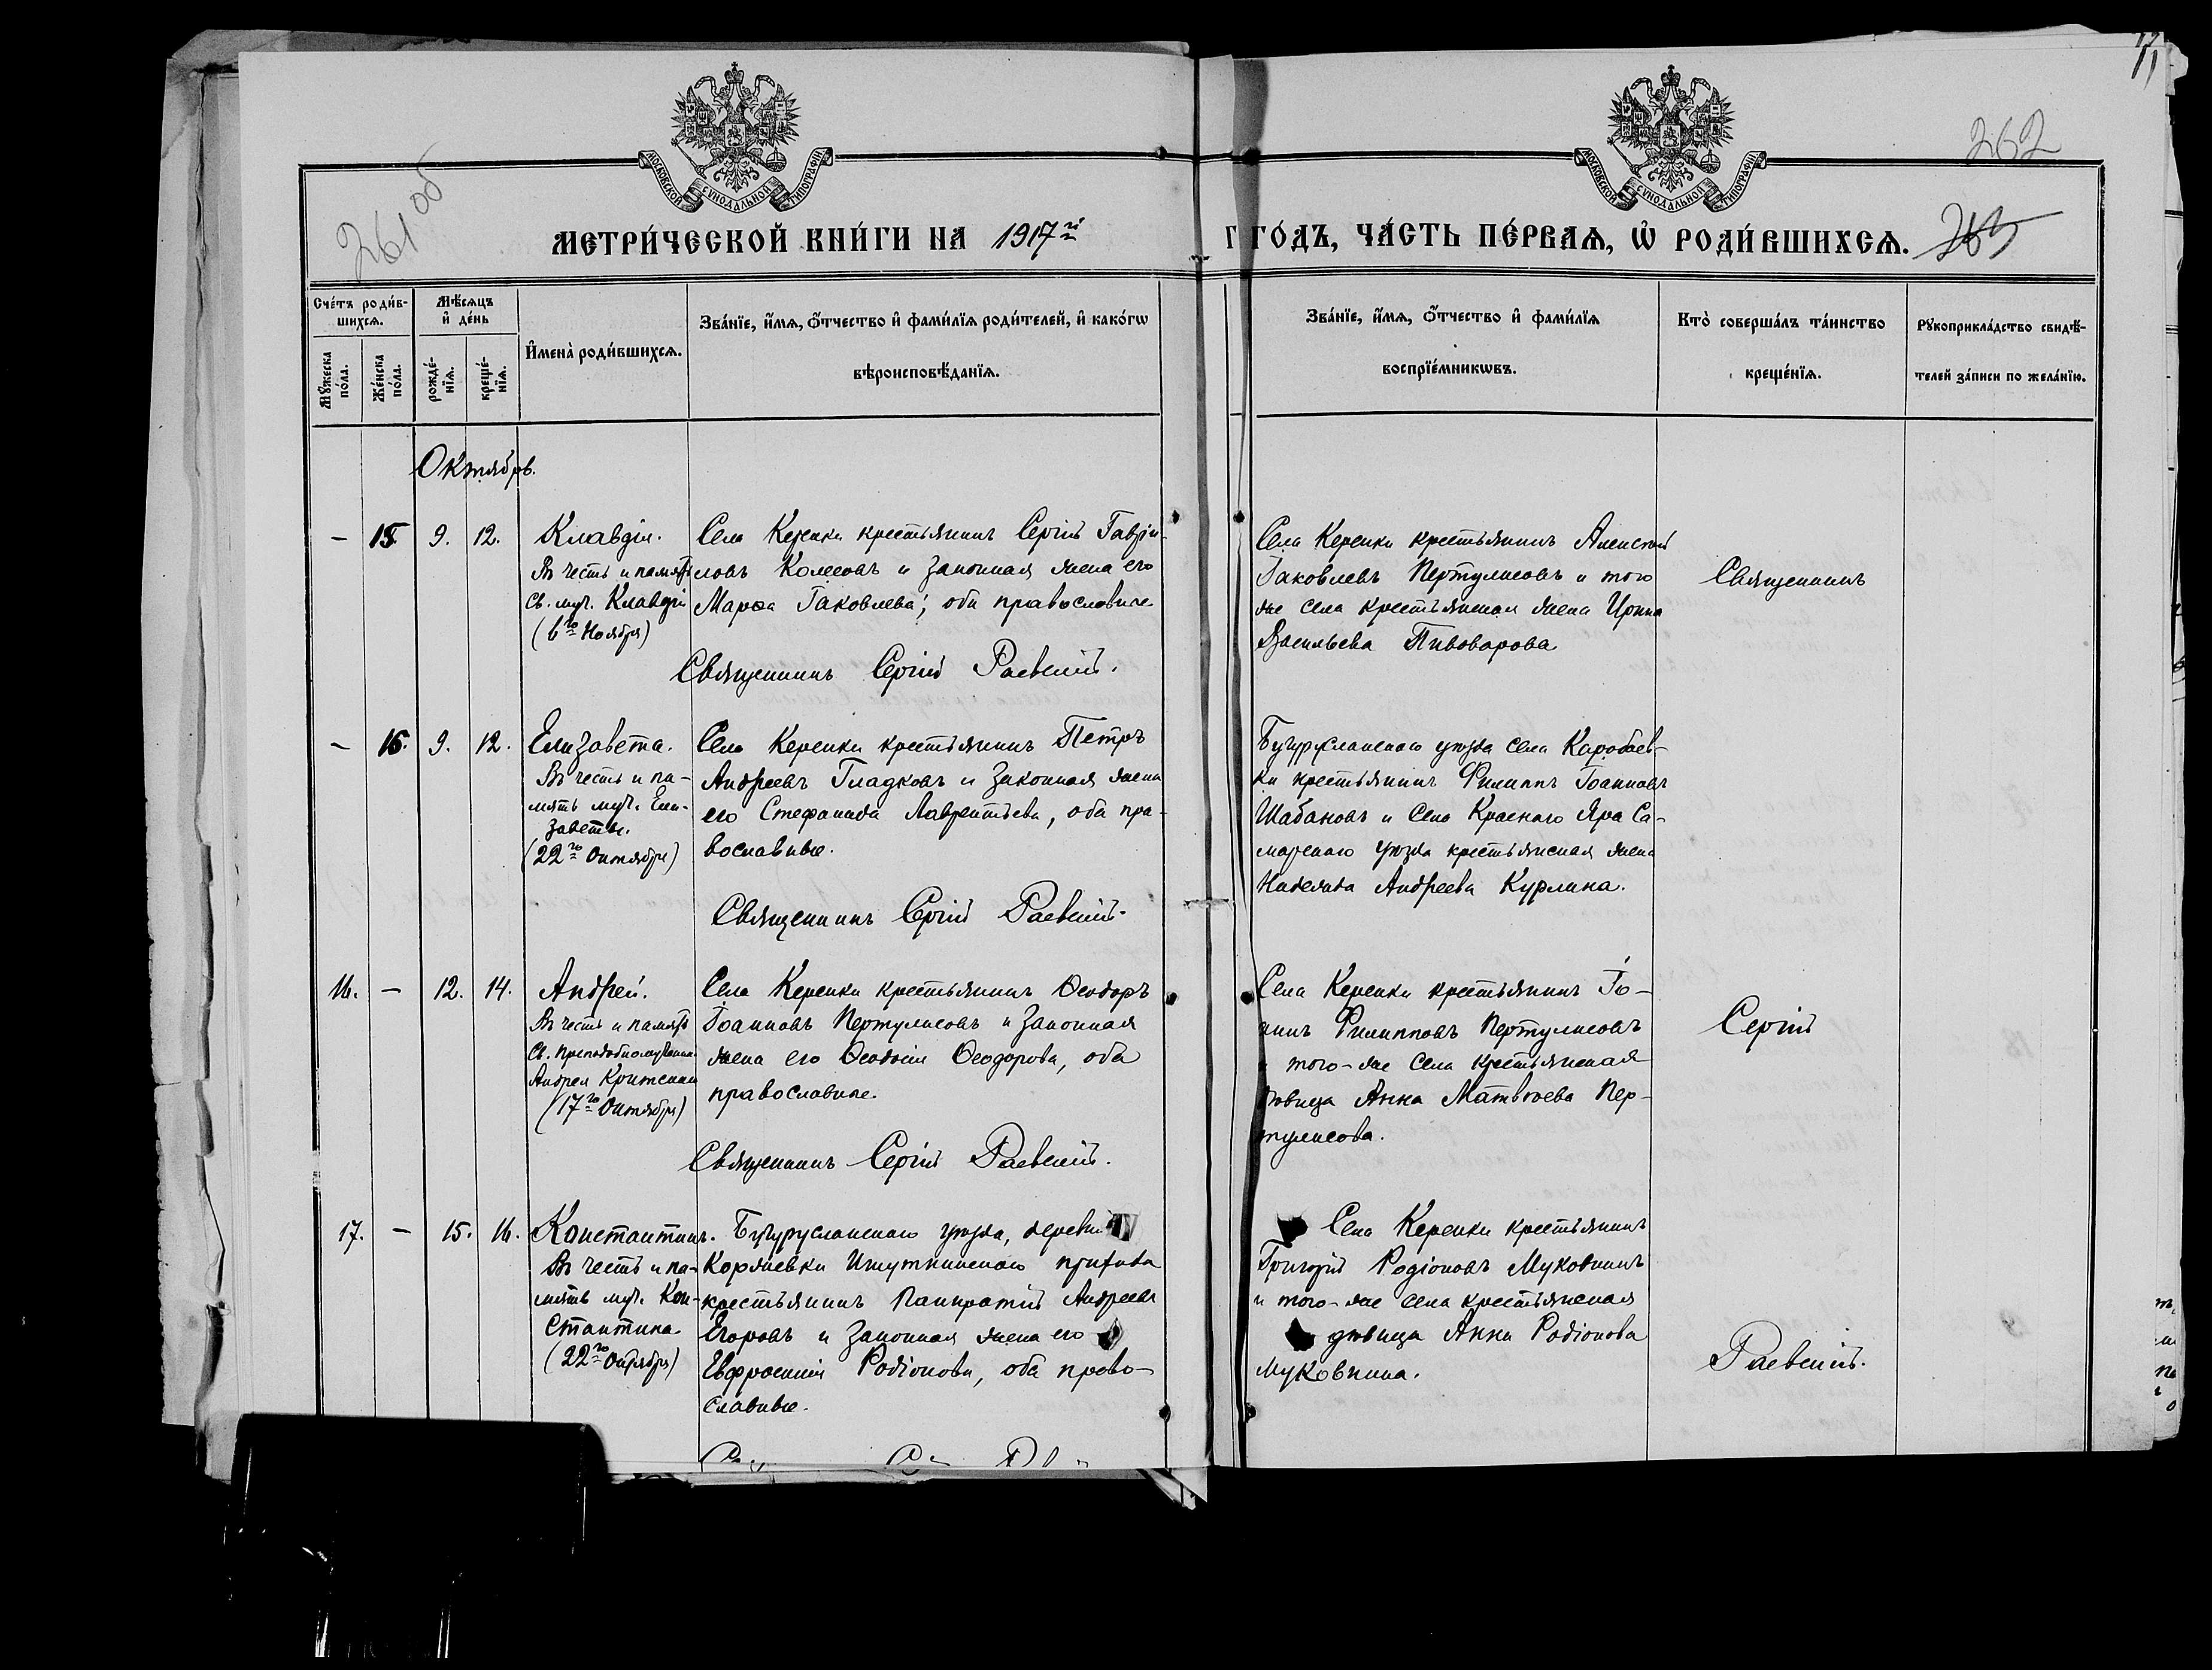 261 об
262
265
МОСКОВСКОЙ СУНОДАЛЬНОЙ ТИПОГРАФІИ
МОСКОВСКОЙ СУНОДАЛЬНОЙ ТИПОГРАФІИ
МЕТРИ́ЧЕСКОЙ КНИ́ГИ НА 1917й
ГО́ДЪ, ЧА́СТЬ ПЕ́РВАѦ, Ѡ҆ РОДИ́ВШИХСѦ.
Сче́тъ роди́в-
шихсѧ.
Мꙋ́жеска по́ла.
Же́нска по́ла.
Мѣ́сѧцъ и҆ де́нь
рожде́-
нїѧ.
креще́-
нїѧ.
И҆мена̀ роди́вшихсѧ.
Зва́нїе, и҆́мѧ, ѻ҆́тчество и҆ фами́лїѧ роди́телей, и҆ како́гѡ
вѣроисповѣ́данїѧ.
Зва́нїе, и҆́мѧ, ѻ҆́тчество и҆ фами́лїѧ
воспрїе́мникѡвъ.
Кто̀ соверша́лъ та́инство
креще́нїѧ.
Рꙋкоприкла́дство свидѣ́-
телей за́писи по жела́нїю.
Октябрь.
— 15 9. 12.
Клавдія.
Въ честь и память
Св. муч. Клавдіи
(6го Ноября)
Села Керенки крестьянинъ Сергій Гаврі-
ловъ Колесовъ и законная жена его
Марѳа Іаковлева; оба православные
Священникъ Сергій Раевскій.
Села Керенки крестьянинъ Алексій
Іаковлевъ Пертулисовъ и того
же села крестьянская жена Ирина
Васильева Пивоварова
Священникъ
— 16. 9. 12.
Елизавета.
Въ честь и па-
мять муч. Ели-
заветы.
(22го Октября)
Села Керенки крестьянинъ Петръ
Андреевъ Гладковъ и законная жена
его Стефанида Лаврентьева, оба пра-
вославные.
Священникъ Сергій Раевскій.
Бугурусланскаго уѣзда села Коробаев-
ки крестьянинъ Филиппъ Іоанновъ
Шабановъ и села Краснаго Яра Са-
марскаго уѣзда крестьянская жена
Надежда Андреева Курлина.
16. — 12. 14.
Андрей.
Въ честь и память
Св. преподобномученик.
Андрея Критскаго
(17го Октября)
Села Керенки крестьянинъ Ѳеодоръ
Іоанновъ Пертулисовъ и законная
жена его Ѳеодосія Ѳеодорова, оба
православные.
Священникъ Сергій Раевскій.
Села Керенки крестьянинъ Іо-
аннъ Филипповъ Пертулисовъ
и того-же села крестьянская
вдовица Анна Матвѣева Пер-
тулисова.
Сергій
17. — 15. 16.
Константинъ.
Въ честь и па-
мять муч. Кон-
стантина
(22го Октября)
Бугурусланскаго уѣзда, деревни
Коряжевки Ишуткинскаго прихода
крестьянинъ Панкратій Андреевъ
Егоровъ и законная жена его
Евфросинія Родіонова, оба право-
славные.
Села Керенки крестьянинъ
Григорій Родіоновъ Муковнинъ
и того-же села крестьянская
дѣвица Анна Родіонова
Муковнина.
Раевскій.